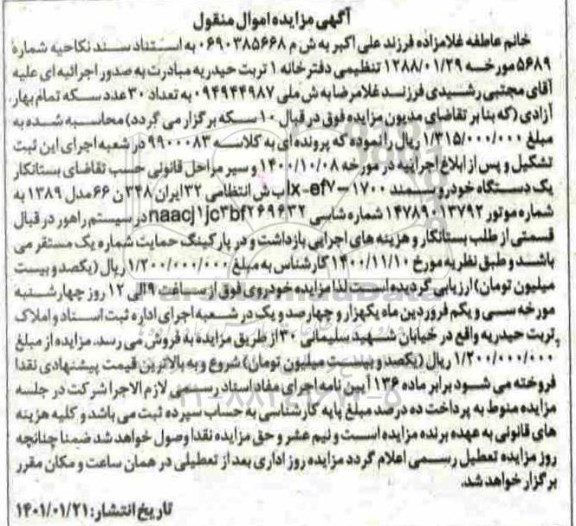 آگهی مزایده اموال منقول
خانم عاطفه غلامزاده فرزند علی اکبر به ش م ۰۶۹۰۳۸۵۶۶۸ به استناد سند نکاحیه شماره
۵۶۸۹ مورخه ۱۲۸۸/۰۱/۲۹ تنظیمی دفترخانه ۱ تربت حیدریه مبادرت به صدور اجرائیه ای علیه
آقای مجتبی رشیدی فرزند غلامرضا به ش ملی ۰۹۴۹۴۴۹۸۷ به تعداد ۳۰ عدد سکه تمام بهار
آزادی (که بنا بر تقاضای مدیون مزایده فوق در قبال ۱۰ سکه برگزار می گردد) محاسبه شده به
مبلغ ۱/۳۱۵/۰۰۰/۰۰۰ ریال را نموده که پرونده ای به کلاسه ۹۹۰۰۰۸۳ در شعبه اجرای این ثبت
تشکیل و پس از ابلاغ اجراییه در مورخه ۱۴۰۰/۱۰/۰۸ و سیر مراحل قانونی حسب تقاضای بستانکار
یک دستگاه خودرو سمند lx-ef۷-۱۷۰۰ با ش انتظامی ۳۲ ایران ۳۴۸ ن ۶۶ مدل ۱۳۸۹ به
شماره موتور ۱۴۷۸۹۰۱۳۷۹۲ شماره شاسی naacj۱jc۲bf۲۶۹۶۳۲ در سیستم راهور در قبال
قسمتی از طلب بستانکار و هزینه های اجرایی بازداشت و در پارکینگ حمایت شماره یک مستقر می
باشد و طبق نظریه مورخ ۱۴۰۰/۱۱/۱۰ کارشناس به مبلغ ۱/۲۰۰/۰۰۰/۰۰۰ ریال (یکصد و بیست
میلیون تومان) ارزیابی گردیده است لذا مزایده خودروی فوق از ساعت ۹ الی ۱۲ روز چهارشنبه
مورخه سی و یکم فروردین ماه یکهزار و چهارصد و یک در شعبه اجرای اداره ثبت اسناد و املاک
تربت حیدریه واقع در خیابان شهید سلیمانی ۳۰ از طریق مزایده به فروش می رسد. مزایده از مبلغ
۱/۲۰۰/۰۰۰/۰۰۰ ریال (یکصد و بیست میلیون تومان) شروع و به بالاترین قیمت پیشنهادی نقدا
فروخته می شود برابر ماده ۱۳۶ آیین نامه اجرای مفاد اسناد رسمی لازم الاجرا شرکت در جلسه
مزایده منوط به پرداخت ده درصد مبلغ پایه کارشناسی به حساب سپرده ثبت می باشد و کلیه هزینه
های قانونی به عهده برنده مزایده است و نیم عشر و حق مزایده نقدا وصول خواهد شد ضمنا چنانچه
روز مزایده تعطیل رسمی اعلام گردد مزایده روز اداری بعد از تعطیلی در همان ساعت و مکان مقرر
برگزار خواهد شد.
تاریخ انتشار: ۱۴۰۱/۰۱/۲۱